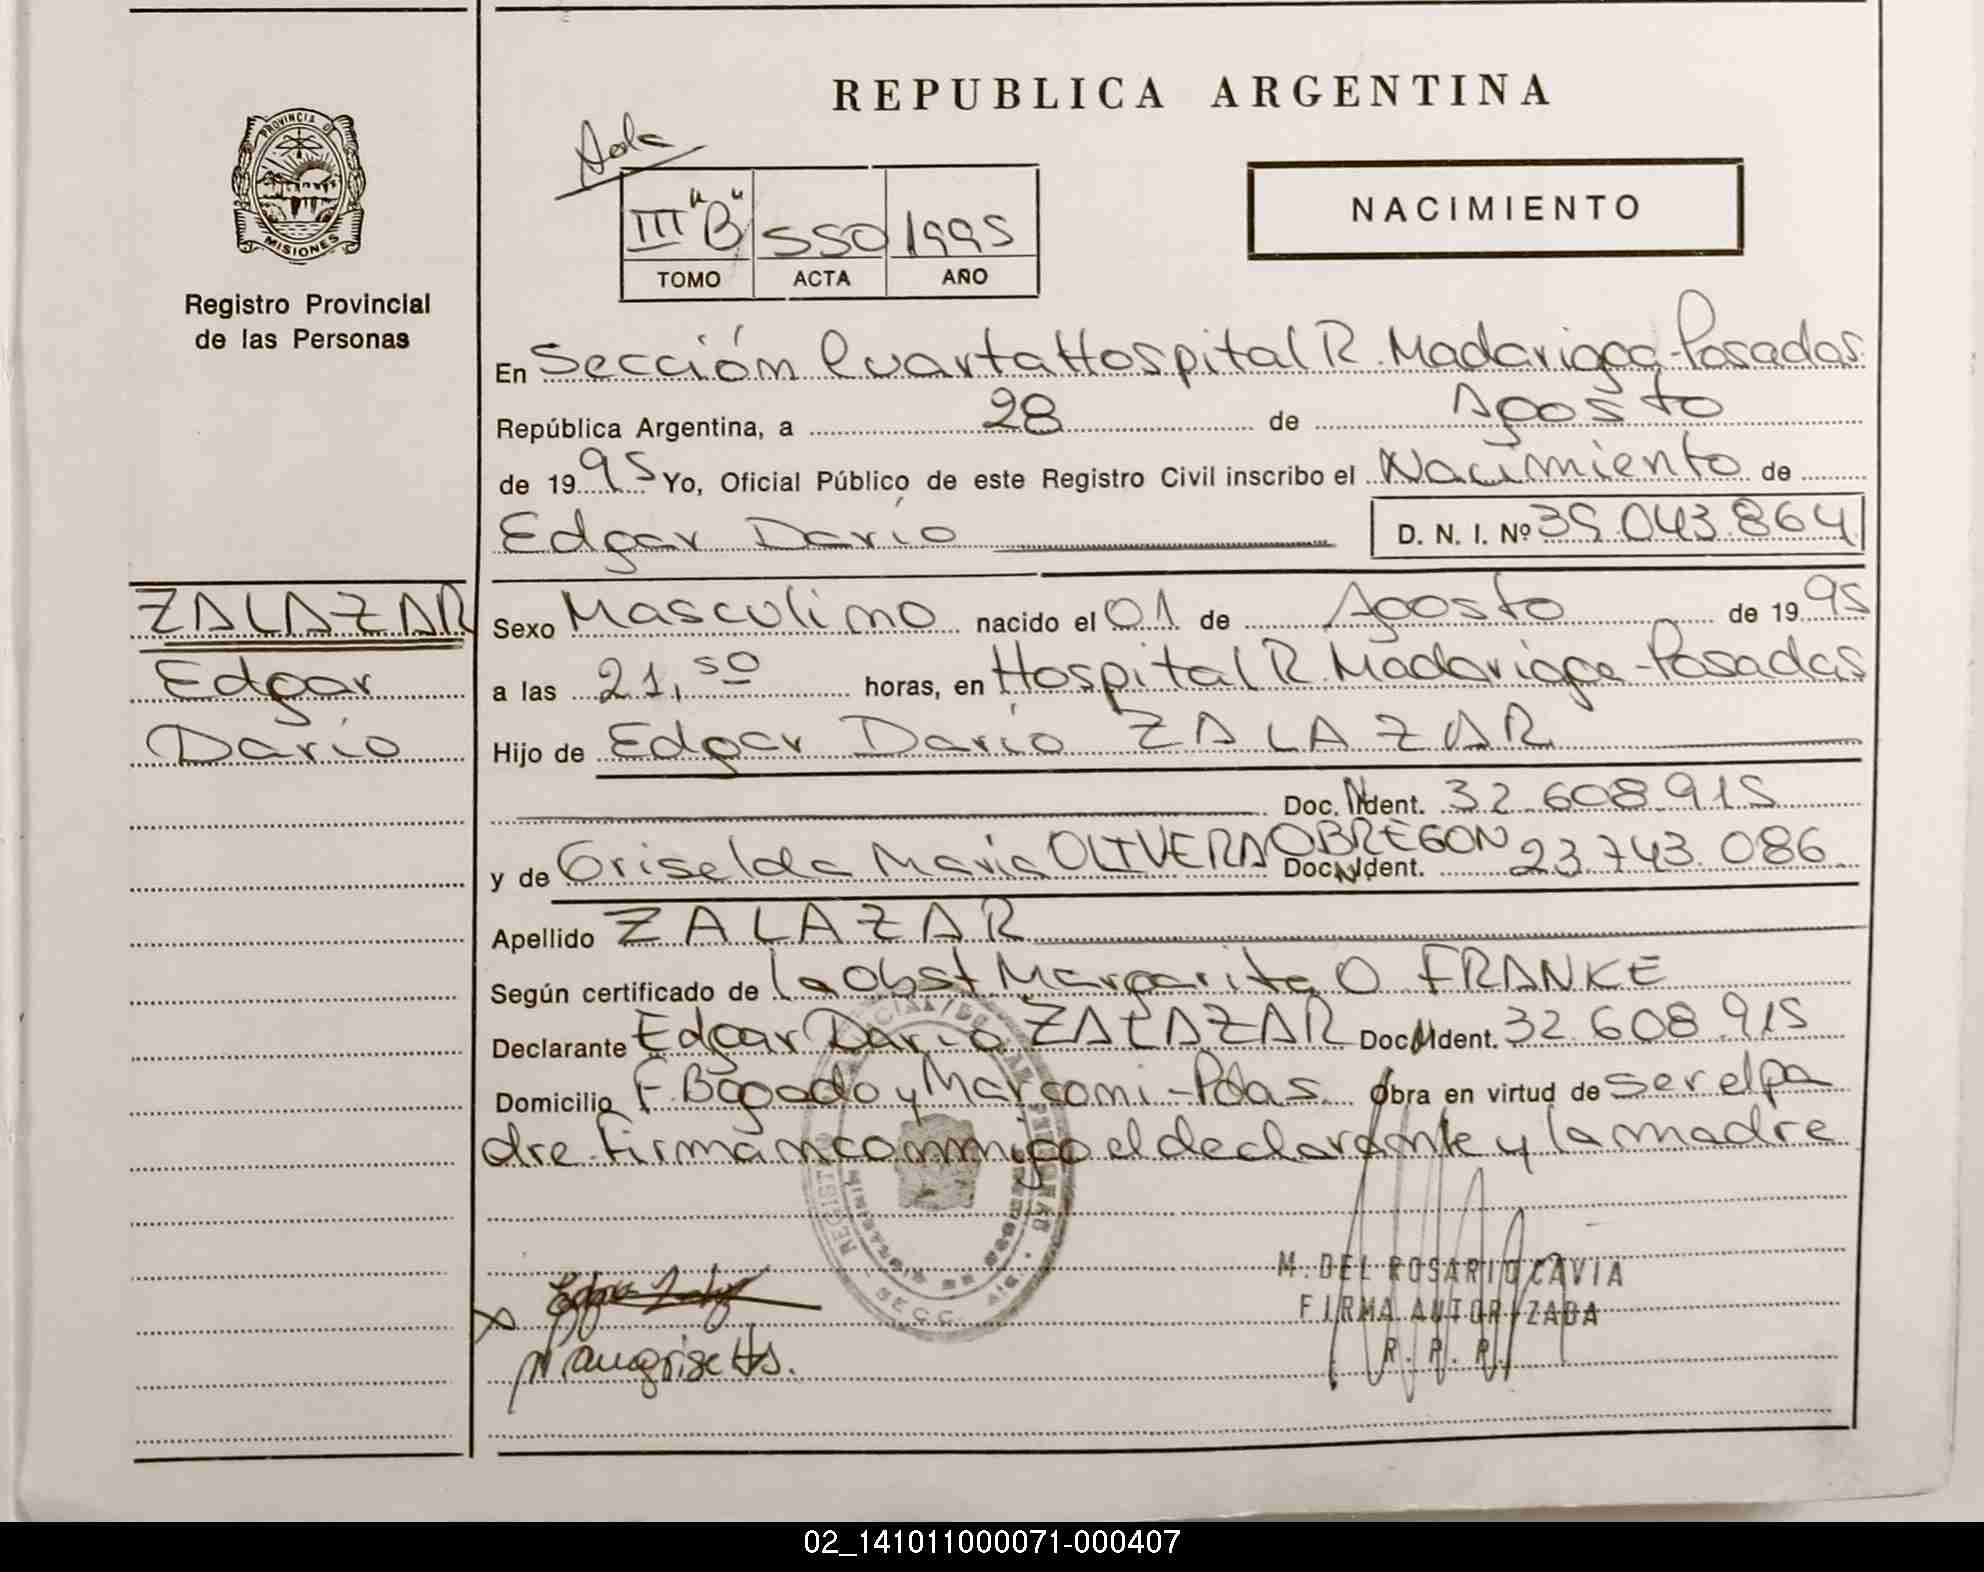 REPUBLICA ARGENTINA
PROVINCIA DE
MISIONES
Registro Provincial
de las Personas
III "B" 550 1995
TOMO ACTA AÑO
NACIMIENTO
En Sección Cuarta Hospital R. Madariaga-Posadas.
República Argentina, a 28 de Agosto
de 1995 Yo, Oficial Público de este Registro Civil inscribo el Nacimiento de
Edgar Darío D. N. I. Nº 39.043.864
ZALAZAR
Edgar
Darío
Sexo Masculino nacido el 01 de Agosto de 1995
a las 21,50 horas, en Hospital R. Madariaga-Posadas
Hijo de Edgar Darío ZALAZAR
Doc. N Ident. 32.608.915
y de Griselda Maria OLIVERA OBREGON Doc. N Ident. 23.743.086
Apellido ZALAZAR
Según certificado de la Obst Margarita O. FRANKE
Declarante Edgar Darío ZALAZAR Doc. N Ident. 32.608.915
Domicilio F. Bogado y Marconi-Pdas. Obra en virtud de ser el pa
dre. Firman conmigo el declarante y la madre
M. DEL ROSARIO CAVIA
FIRMA AUTORIZADA
R. P. P.
02_141011000071-000407